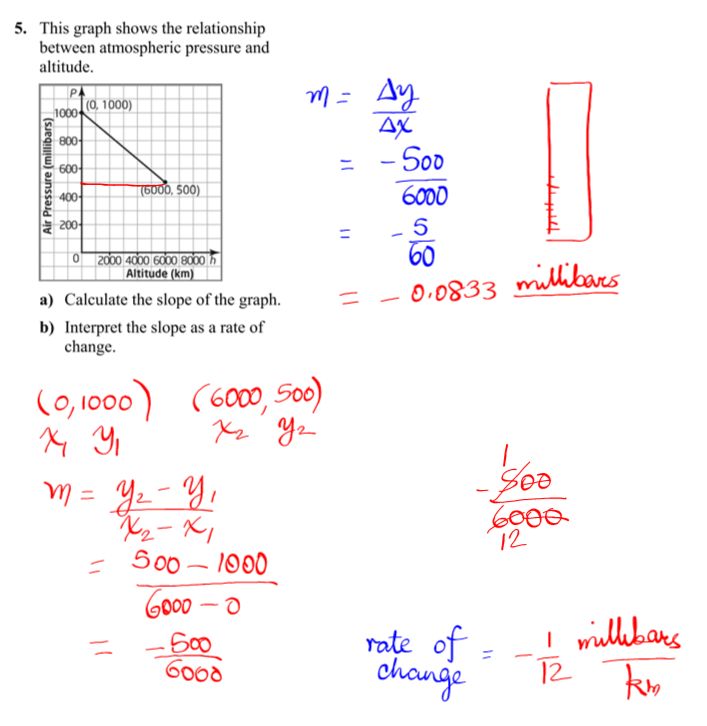 5. This graph shows the relationship
between atmospheric pressure and
altitude.
P
(0, 1000)
1000
800
600
400
200
0
(6000, 500)
2000 4000 6000 8000 h
Air Pressure (millibars)
Altitude (km)
a) Calculate the slope of the graph.
b) Interpret the slope as a rate of
change.
m = Δy
Δx
= -500
6000
= -5
60
= - 0.0833 millibars
(0, 1000) (6000, 500)
x1 y1 x2 y2
m = y2 - y1
x2 - x1
= 500 - 1000
6000 - 0
= -500
6000
1
- 500
6000
12
rate of
change = - 1 millibars
12 km